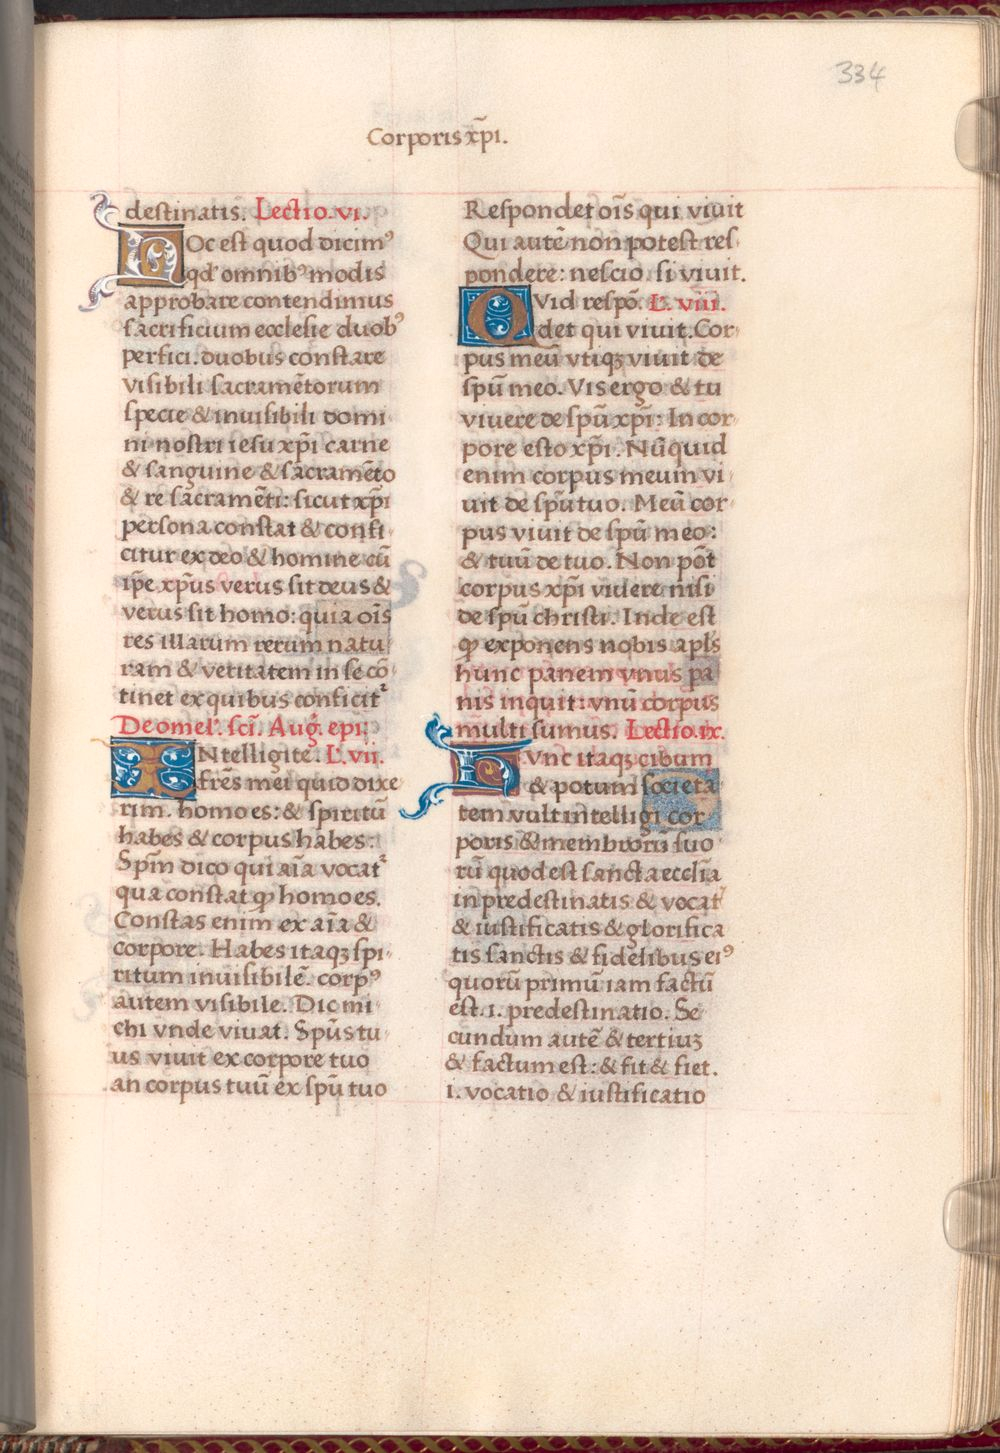 334
Corporis xp̄i.
destinatis. Lectio. vi.
HOc est quod dicimꝰ
qd' omnibꝰ modis
approbare contendimus
sacrificium ecclesie duobꝰ
perfici. duobus constare
visibili sacramētorum
specie & inuisibili domi
ni nostri iesu xp̄i carne
& sanguine & sacramēto
& re sacramēti: sicut xp̄i
persona constat & confi
citur ex deo & homine cū
ip̄e xp̄us verus sit deus &
verus sit homo: quia oīs
res illarum rerum natu
ram & veritatem in se cō
tinet ex quibus conficit᷑
De omel'. sc̄i. Auḡ. epi.
INtelligite. L'. vii.
frēs mei quid dixe
rim. homo es: & spiritū
habes & corpus habes:
Sp̄m dico qui aīa vocat᷑
qua constat ꝙ homo es.
Constas enim ex aīa &
corpore. Habes itaqꝫ spi
ritum inuisibilē. corpꝰ
autem visibile. Dic mi
chi vnde viuat. Sp̄us tu
us viuit ex corpore tuo
an corpus tuū ex sp̄u tuo
Respondet oīs qui viuit
Qui autē non potest res
pondere: nescio si viuit.
QVid respō. L'. viii.
det qui viuit. Cor
pus meū vtiqꝫ viuit de
sp̄u meo. Vis ergo & tu
viuere de sp̄u xp̄i: In cor
pore esto xp̄i. Nūquid
enim corpus meum vi
uit de sp̄u tuo. Meū cor
pus viuit de sp̄u meo:
& tuū de tuo. Non pōt
corpus xp̄i viuere nisi
de sp̄u christi. Inde est
ꝙ exponens nobis apl̄s
hunc panem vnus pa
nis inquit: vnū corpus
multi sumus. Lectio. ix.
HVnc itaqꝫ cibum
& potum societa
tem vult intelligi cor
poris & membrorū suo
rū quod est sancta eccl̄ia
in predestinatis & vocat᷑
& iustificatis & glorifica
tis sanctis & fidelibus eiꝰ
quorū primū iam factū
est. i. predestinatio. Se
cundum autē & tertiuꝫ
& factum est: & fit & fiet.
i. vocatio & iustificatio